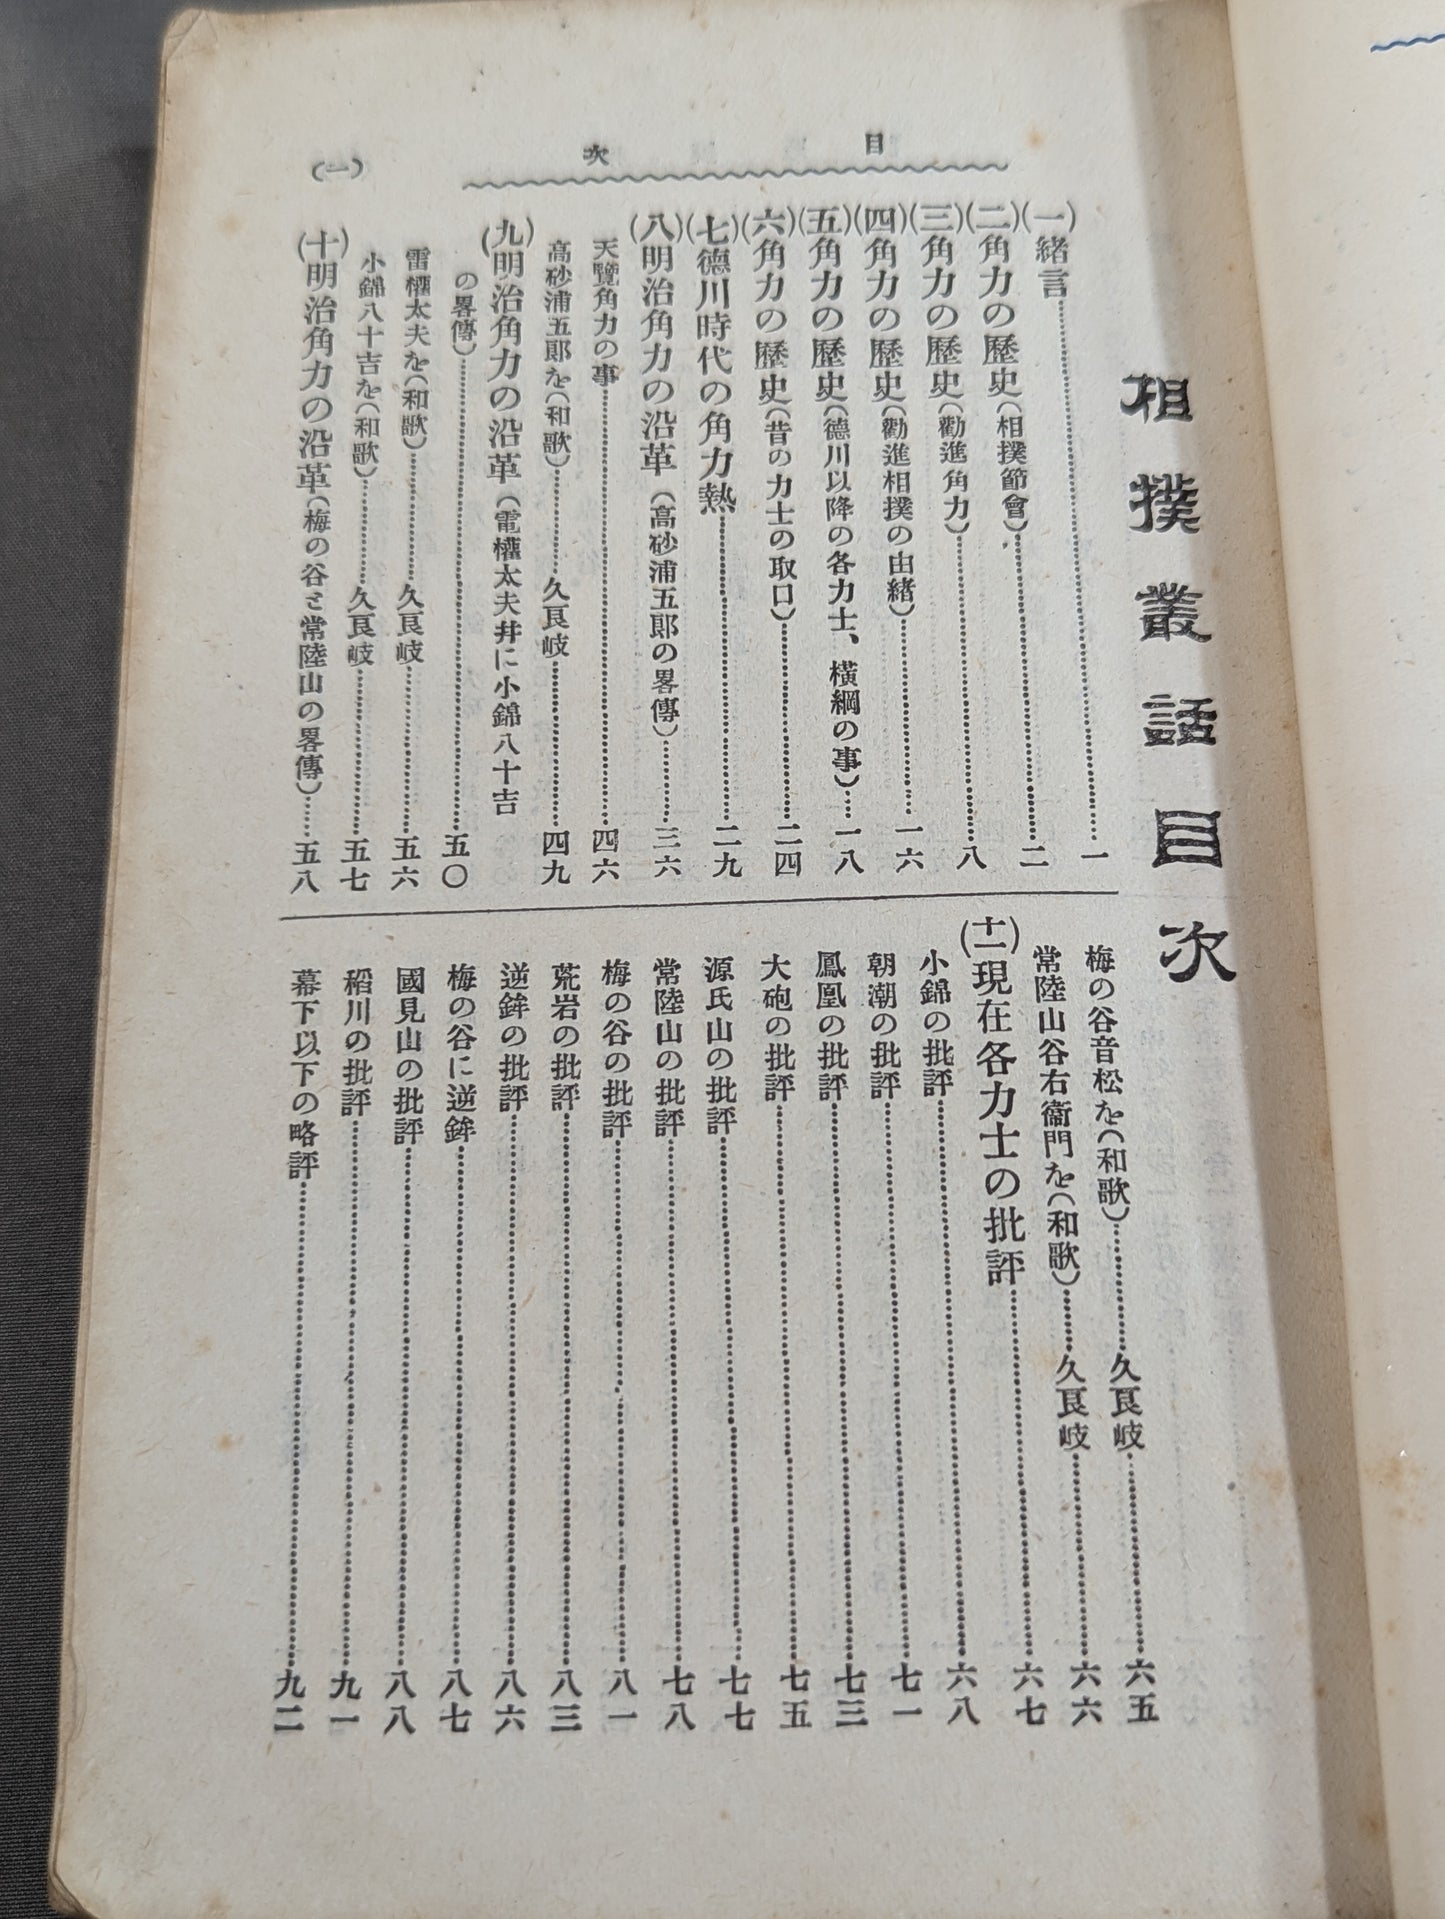 相撲叢話目次
目次
(一)緒言…………一
(二)角力の歷史(相撲節會)…………二
(三)角力の歷史(勸進角力)…………八
(四)角力の歷史(勸進相撲の由緖)…………一六
(五)角力の歷史(德川以降の各力士、橫綱の事)……一八
(六)角力の歷史(昔の力士の取口)…………二四
(七)德川時代の角力熱…………二九
(八)明治角力の沿革(高砂浦五郞の畧傳)…………三六
天覽角力の事…………四六
高砂浦五郞を(和歌)…………久良岐…………四九
(九)明治角力の沿革(電權太夫幷に小錦八十吉
の畧傳)…………五〇
雷權太夫を(和歌)…………久良岐…………五六
小錦八十吉を(和歌)…………久良岐…………五七
(十)明治角力の沿革(梅の谷と常陸山の畧傳)……五八
梅の谷音松を(和歌)…………久良岐…………六五
常陸山谷右衞門を(和歌)…………久良岐…………六六
(十一)現在各力士の批評…………六七
小錦の批評…………六八
朝潮の批評…………七一
鳳凰の批評…………七三
大砲の批評…………七五
源氏山の批評…………七七
常陸山の批評…………七八
梅の谷の批評…………八一
荒岩の批評…………八三
逆鉾の批評…………八六
梅の谷に逆鉾…………八七
國見山の批評…………八八
稻川の批評…………九一
幕下以下の略評…………九二
(一)